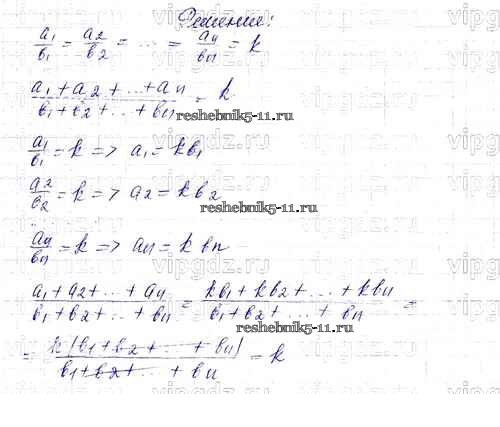 Решение:
a₁/b₁ = a₂/b₂ = ... = aₙ/bₙ = k
(a₁ + a₂ + ... + aₙ)/(b₁ + b₂ + ... + bₙ) = k
reshebnik5-11.ru
a₁/b₁ = k => a₁ = kb₁
a₂/b₂ = k => a₂ = kb₂
reshebnik5-11.ru
...
aₙ/bₙ = k => aₙ = kbₙ
(a₁ + a₂ + ... + aₙ)/(b₁ + b₂ + ... + bₙ) = (kb₁ + kb₂ + ... + kbₙ)/(b₁ + b₂ + ... + bₙ) =
reshebnik5-11.ru
= k(b₁ + b₂ + ... + bₙ)/(b₁ + b₂ + ... + bₙ) = k
vipgdz.ru